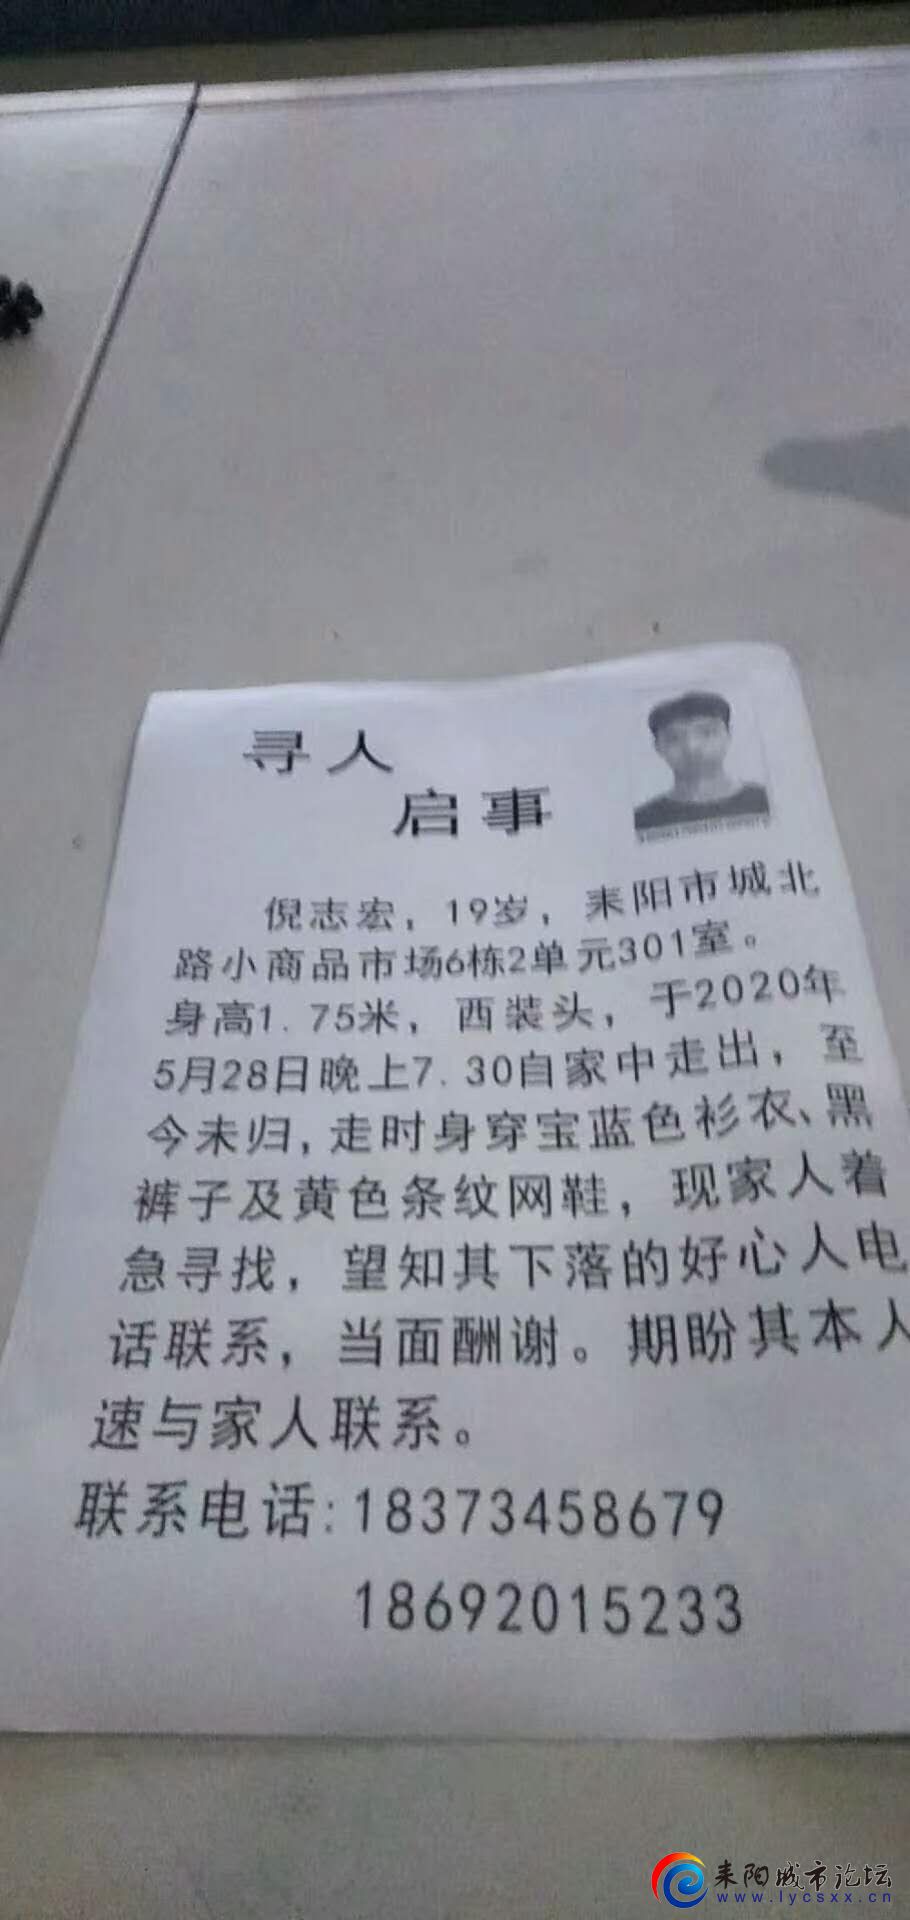 寻人
启事
倪志宏，19岁，耒阳市城北
路小商品市场6栋2单元301室。
身高1.75米，西装头，于2020年
5月28日晚上7.30自家中走出，至
今未归，走时身穿宝蓝色衫衣、黑
裤子及黄色条纹网鞋，现家人着
急寻找，望知其下落的好心人电
话联系，当面酬谢。期盼其本人
速与家人联系。
联系电话:18373458679
18692015233
耒阳城市论坛
www.lycsxx.cn